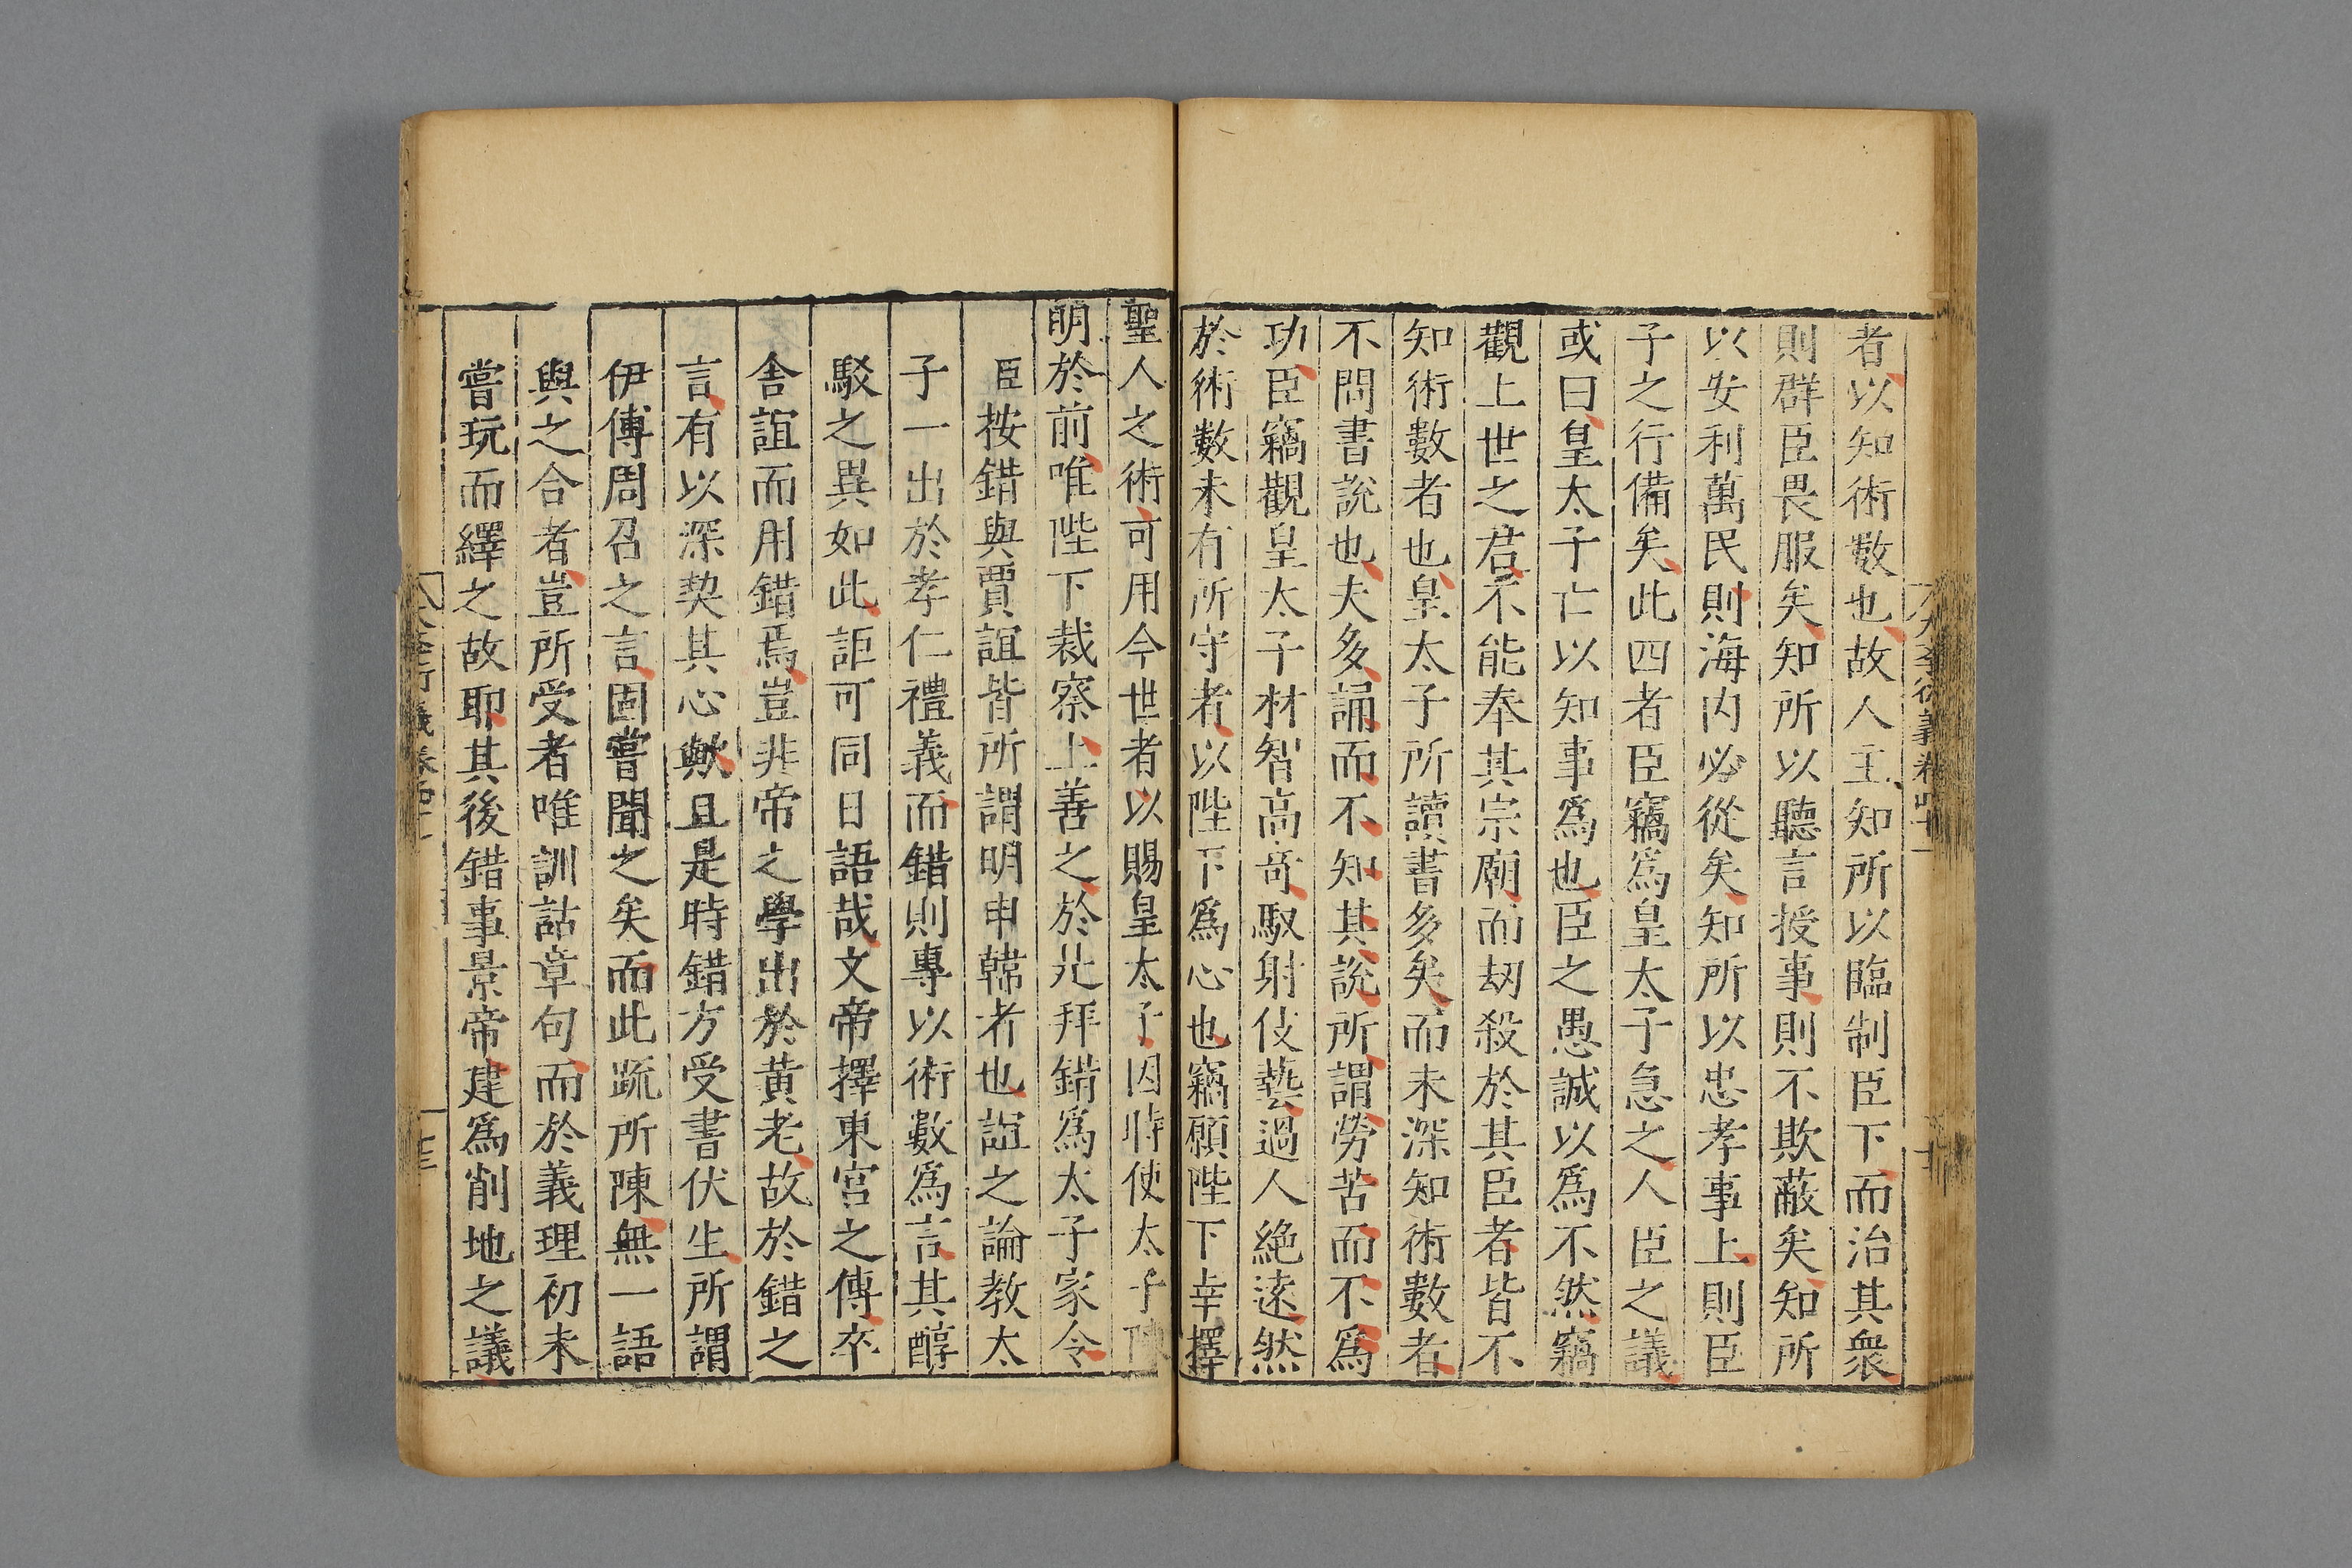 者以知術數也故人主知所以臨制臣下而治其衆
則群臣畏服矣知所以聽言授事則不欺蔽矣知所
以安利萬民則海内必從矣知所以忠孝事上則臣
子之行備矣此四者臣竊爲皇太子急之人臣之議
或曰皇太子亡以知事爲也臣之愚誠以爲不然竊
觀上世之君不能奉其宗廟而刼殺於其臣者皆不
知術數者也皇太子所讀書多矣而未深知術數者
不問書說也夫多誦而不知其說所謂勞苦而不爲
功臣竊觀皇太子材智高竒馭射伎藝過人絶逺然
於術數未有所守者以陛下爲心也竊願陛下幸擇
聖人之術可用今世者以賜皇太子因時使太子陳
明於前唯陛下裁察上善之於是拜錯爲太子家令
臣按錯與賈誼皆所謂明申韓者也誼之論教太
子一出於孝仁禮義而錯則專以術數爲言其醇
駁之異如此詎可同日語哉文帝擇東宮之傅卒
舍誼而用錯焉豈非帝之學出於黄老故於錯之
言有以深契其心歟且是時錯方受書伏生所謂
伊傅周召之言固嘗聞之矣而此疏所陳無一語
與之合者豈所受者唯訓詁章句而於義理初未
嘗玩而繹之故耶其後錯事景帝建爲削地之議